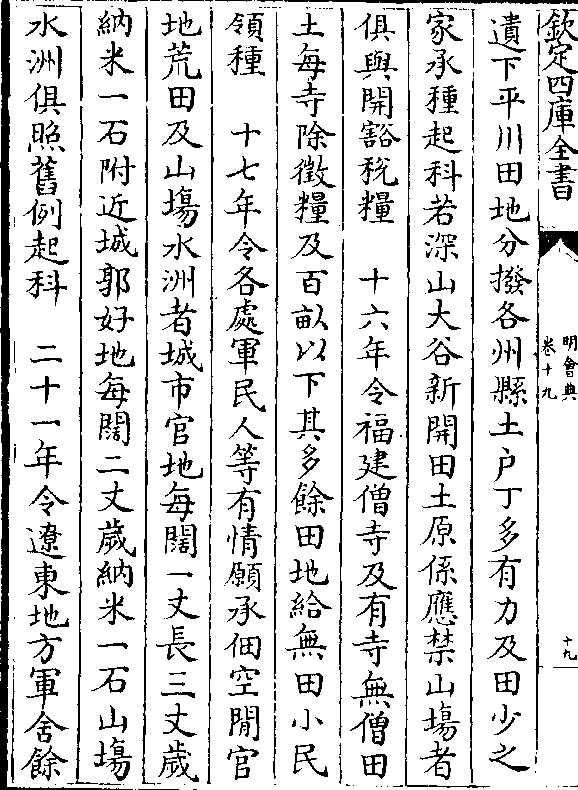 欽定四庫全書
明會典
卷十九
十九
遺下平川田地分撥各州縣土户丁多有力及田少之
家承種起科若深山大谷新開田土原係應禁山塲者
俱與開豁稅糧　十六年令福建僧寺及有寺無僧田
土每寺除徵糧及百畝以下其多餘田地給無田小民
領種　十七年令各處軍民人等有情願承佃空閒官
地荒田及山塲水洲者城市官地每闊一丈長三丈歲
納米一石附近城郭好地每闊二丈歲納米一石山塲
水洲俱照舊例起科　二十一年令遼東地方軍舍餘